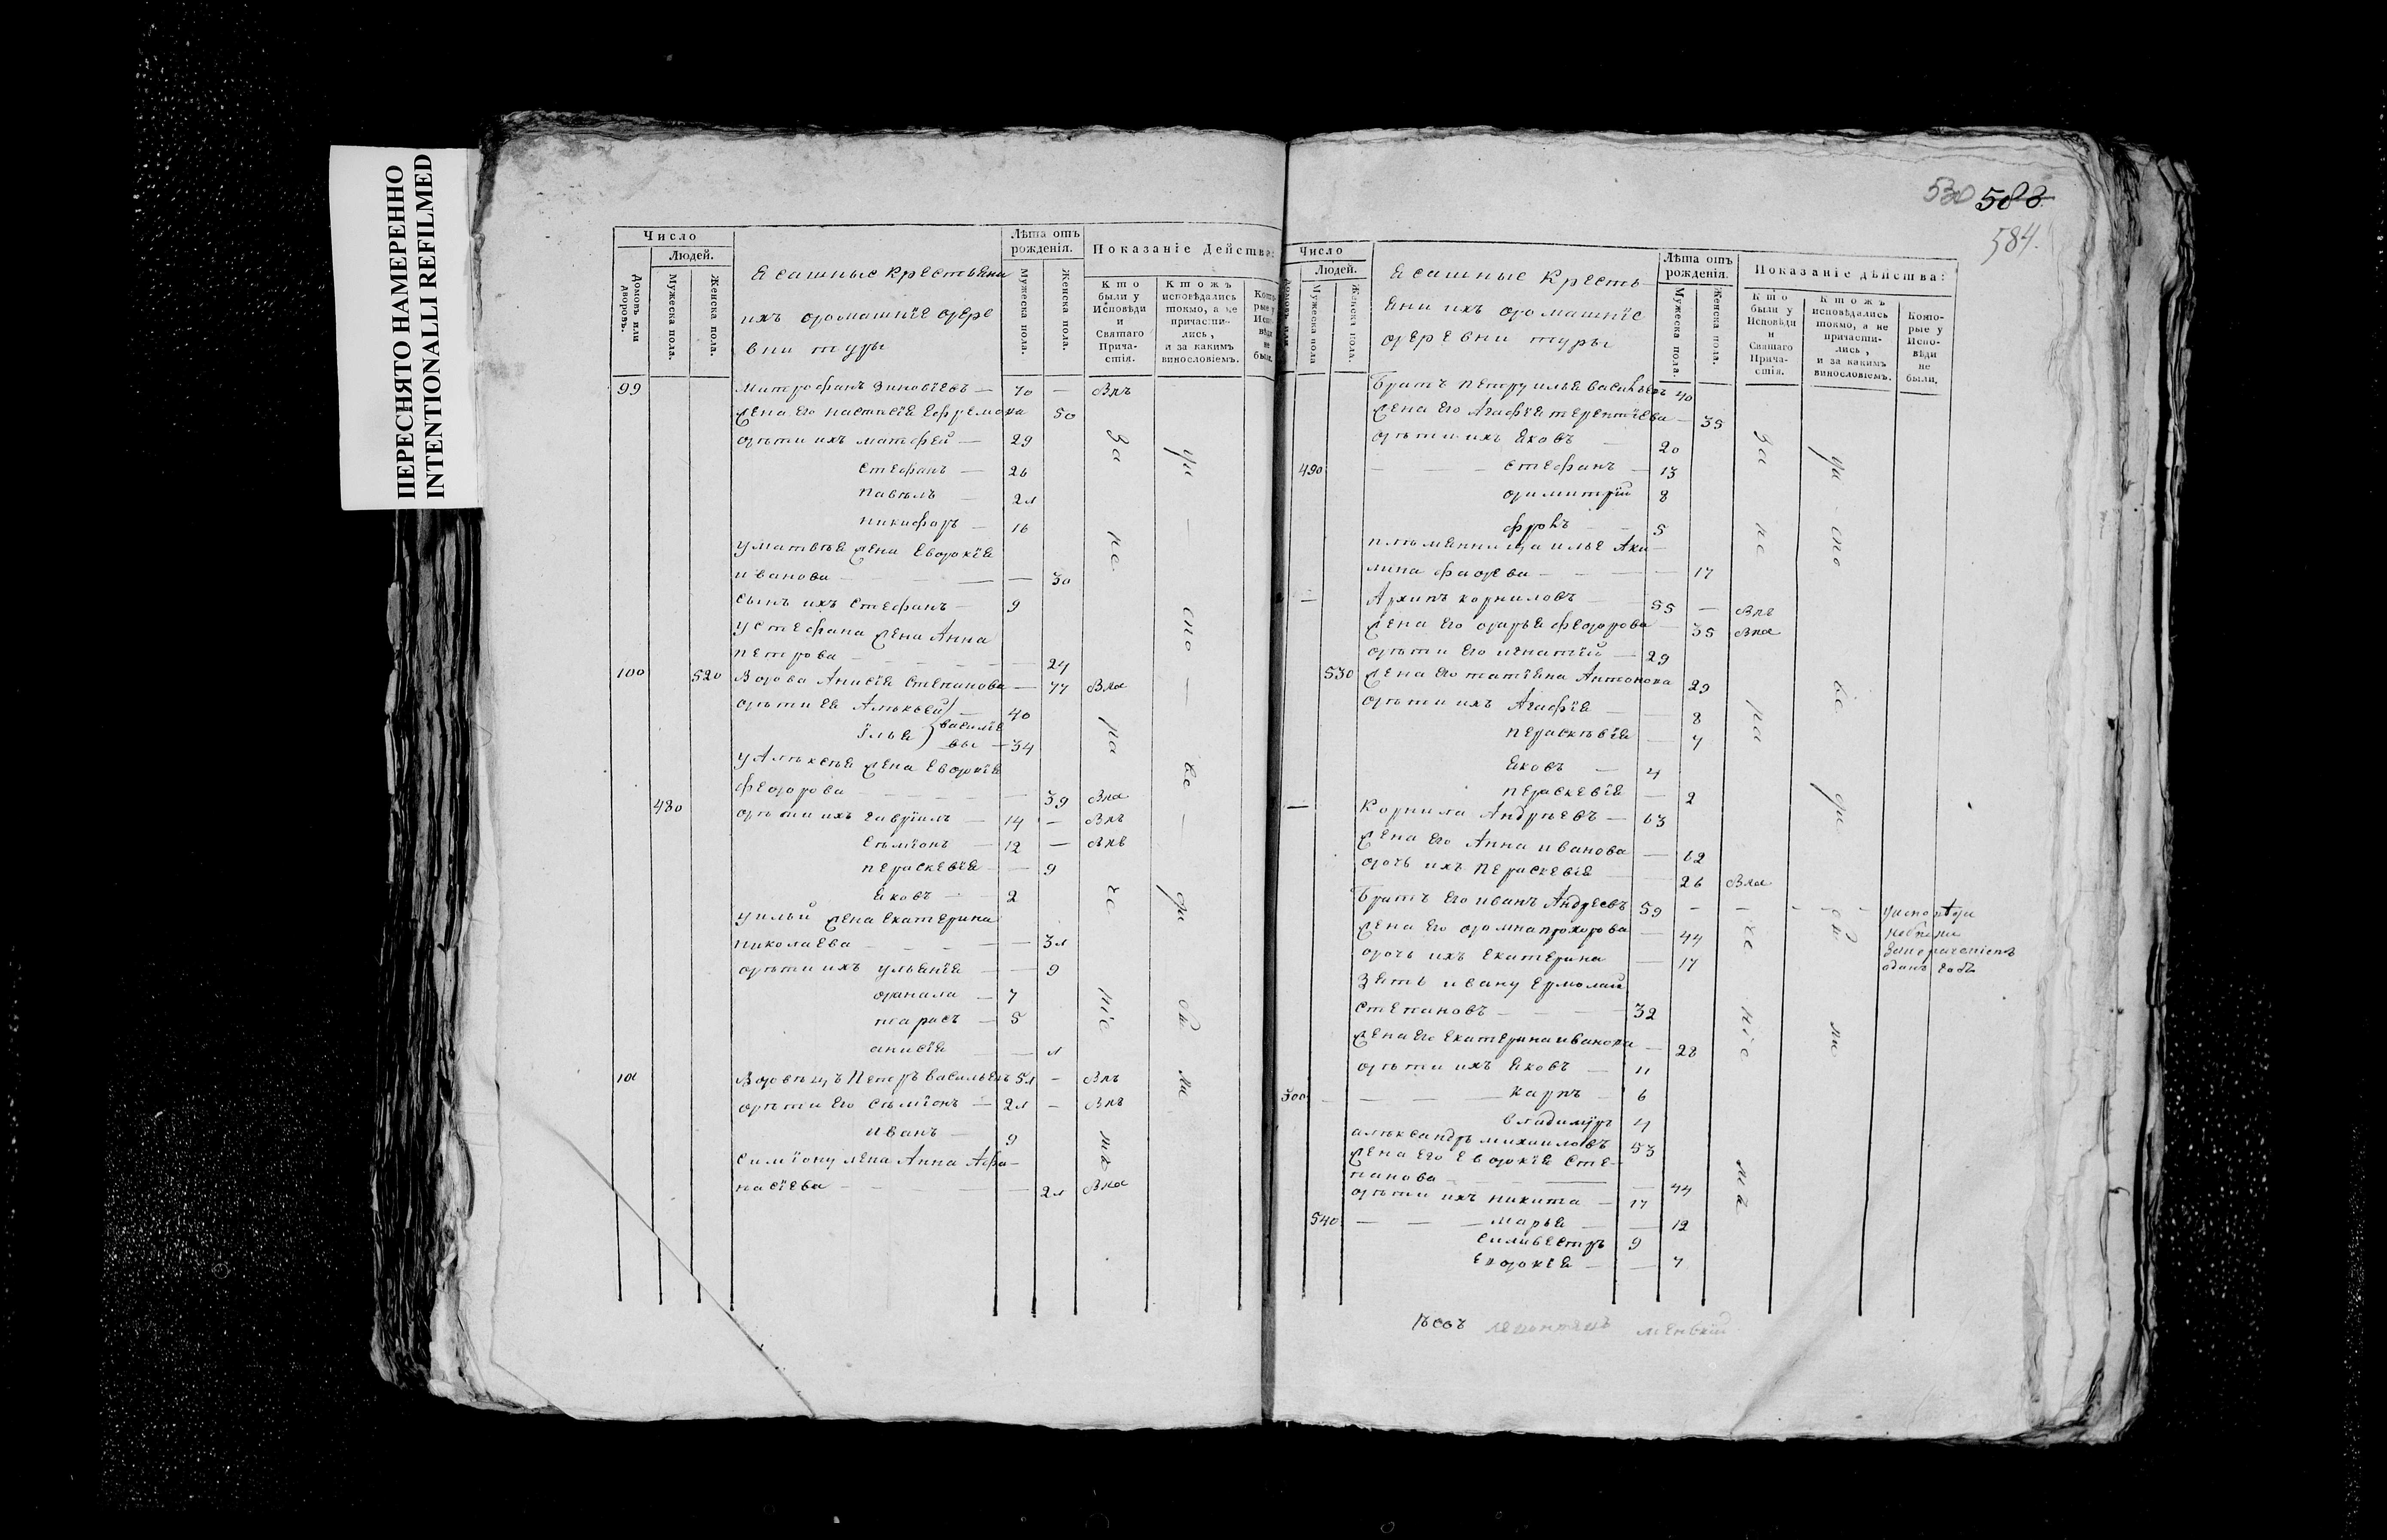 ПЕРЕСНЯТО НАМЕРЕННО
INTENTIONALLI REFILMED
Число
Людей.
Домовъ или дворовъ.
Мужеска пола.
Женска пола.
Ясашные крестьяни
ихъ домашніе дере
вни туры
Лѣта отъ рожденія.
Мужеска пола.
Женска пола.
Показаніе Действа:
Кто были у Исповѣди и Святаго Причастія.
Ктожъ исповѣдались токмо, а не причастились, и за какимъ винословіемъ.
99 Митрофанъ Зиновіевъ — 70 — Впъ
жена его настасія Ефремова 50
дѣти ихъ матфей — 29
Стефанъ — 26
павелъ — 21
никифоръ — 16
у матвѣя жена Евдокія
иванова — — 30
сынъ ихъ Стефанъ — 9
у стефана жена Анна
петрова — — 24
100 520 Вдова Анисія Степанова — 77 Впа
дѣти ея Алѣксей 40
Ілья василіе
вы — 34
у Алѣксѣя жена Евдокія
федорова — — 39 Впа
480 дѣти ихъ гавріилъ — 14 — Впъ
Сѣміонъ — 12 — Впъ
пераскевія — — 9
Яковъ — 2
у ильи жена Екатерина
николаева — — 31
дѣти ихъ ульянія — — 9
данила — 7
тарасъ — 5
анисія — 1
101 Вдовецъ Петръ васильевъ 51 — Впъ
дѣти его Сѣміонъ — 21 — Впъ
иванъ — 9
симіону жена Анна Афа—
насіева — — 21 Впа
за не ра че ні е мъ
у и спо ве ди
530 588
584.
Число
Людей.
Мужеска пола
Женска пола.
Ясашные Кресть
яни ихъ домашніе
деревни туры
Лѣта отъ рожденія.
Мужеска пола.
Женска пола.
Показаніе дѣйства:
Кто были у Исповѣди и Святаго Причастія.
Ктожъ исповѣдались токмо, а не причастились, и за какимъ винословіемъ.
Которые у Исповѣди не были.
Братъ петру илья васильевъ 40
жена его Агафія терентіева — 35
дѣти ихъ Яковъ — 20
490 — — — Стефанъ — 13
димитрій 8
фролъ — 5
плѣменница илье Аки—
лина фадева — — 17
— Архипъ корниловъ 55 — Впъ
жена его дарья федорова — 35 Впа
дѣти его игнатій — 29
530 жена его татіяна Антонова 29
дѣти ихъ Агафія — 8
пераскѣвія — 7
Яковъ — 4
пераскевія — 2
— Корнила Андрѣевъ — 63
жена его Анна иванова — 62
дочь ихъ Перасковія 26 Впа
Братъ его иванъ Андреевъ 59 — — — — у исповѣди
небыли
занераченіемъ
одинъ годъ
жена его домна прохорова — 44
дочь ихъ Екатерина — 17
Зять ивану Ермолай
Степановъ — — 32
жена его Екатерина иванова — 28
дѣти ихъ Яковъ — 11
500 — — — — карпъ — 6
владимиръ 4
алѣксандръ михаиловъ 53
жена его Евдокія Сте—
панова — — 44
дѣти ихъ никита — 17
540 — — — марья — — 12
силивестръ 9
Евдокія — — 7